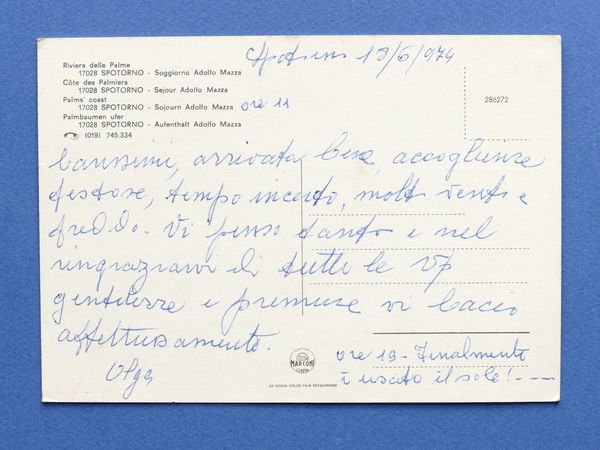 Spotorno 13/6/974
Riviera delle Palme
17028 SPOTORNO - Soggiorno Adolfo Mazza
Côte des Palmiers
17028 SPOTORNO - Sejour Adolfo Mazza
Palms' coast
17028 SPOTORNO - Sojourn Adolfo Mazza
Palmbaumen ufer
17028 SPOTORNO - Aufenthalt Adolfo Mazza
(019) 745.334
286272
ore 11
Carissimi, arrivata bene, accoglienze
festose, tempo incerto, molto vento e
freddo. Vi penso tanto e nel
ringraziarvi di tutte le
gentilezze e premure vi bacio
affettuosamente.
Olga
ore 19 - Finalmente
è uscito il sole! ---
MARCONI
GENOVA
DA KODAK COLOR FILM EKTACHROME